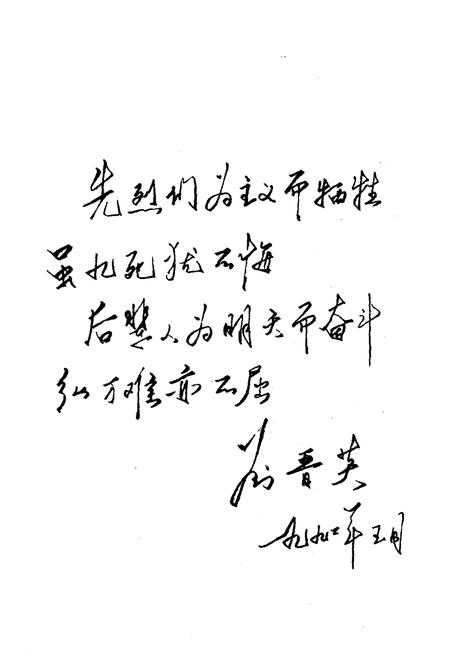 先烈们为主义而牺牲
虽九死犹不悔
后辈人为明天而奋斗
万难亦不屈
晋英
年五月